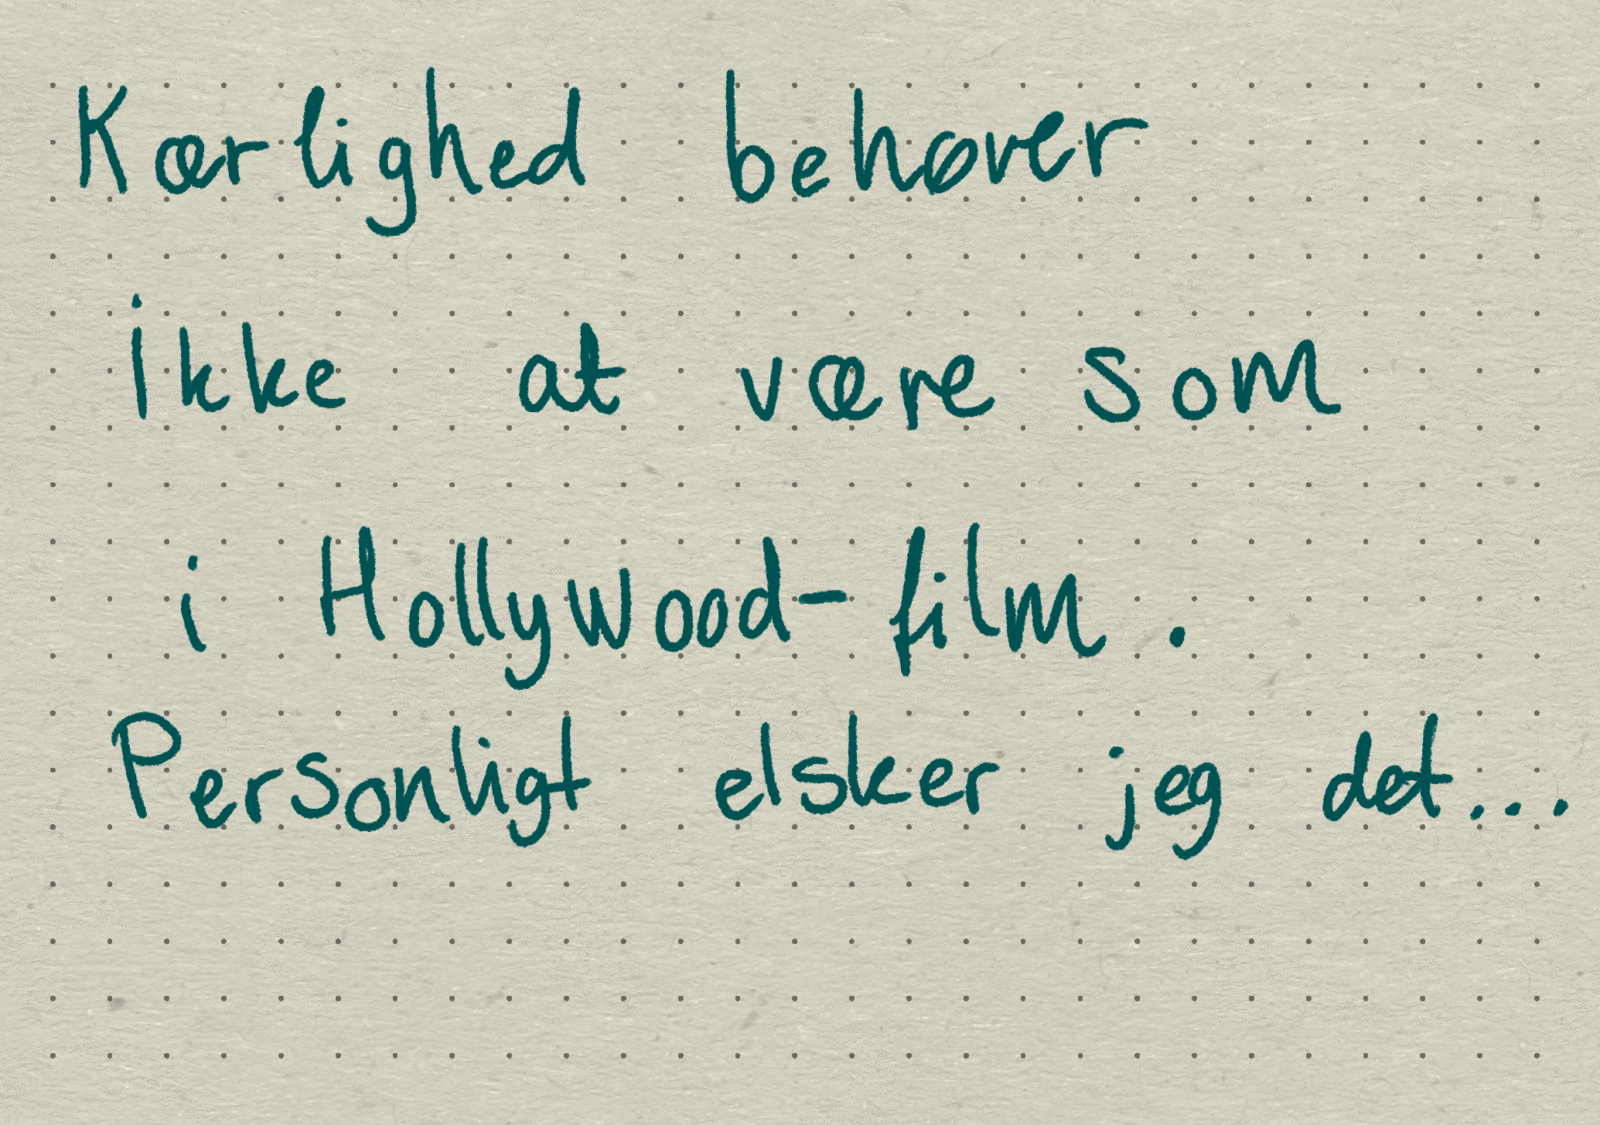 Kærlighed behøver
ikke at være som
i Hollywood-film.
Personligt elsker jeg det...